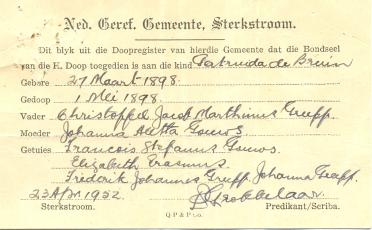 Ned. Geref. Gemeente, Sterkstroom.
Dit blyk uit die Doopregister van hierdie Gemeente dat die Bondseel
van die H. Doop toegedien is aan die kind Gertruida de Bruin
Gebore 27 Maart 1898.
Gedoop 1 Mei 1898.
Vader Christoffel Jacob Marthinus Greeff.
Moeder Johanna Aletta Gouws
Getuies Francois Stefanus Gouws.
Elizabeth Erasmus.
Frederik Johannes Greeff. Johanna Greeff.
23 Apr. 1952 Grobbelaar.
Sterkstroom. Predikant/Scriba.
Q.P & P Co.